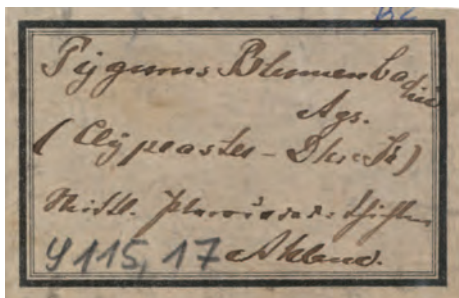 Pygurus Blumenbachii
Ags.
(Clypeaster - Dkr. & K)
Mittl. Pteroceras-Schichten
9115,17 Ahlem.